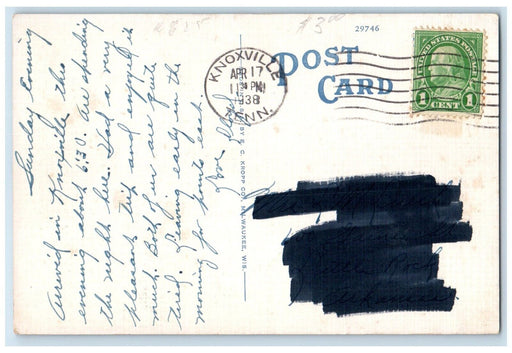 $3.00
29746
POST
CARD
KNOXVILLE
APR 17
11 PM
1938
TENN.
UNITED STATES POSTAGE
1 1
CENT
E. C. KROPP CO., MILWAUKEE, WIS.
Sunday Evening
Arrived in Knoxville this
evening about 6:30. Are spending
the night here. Had a very
pleasant trip and enjoyed it
much. Both of us are quite
tired. Leaving early in the
morning for points east.
Love,
Little Rock
Arkansas.